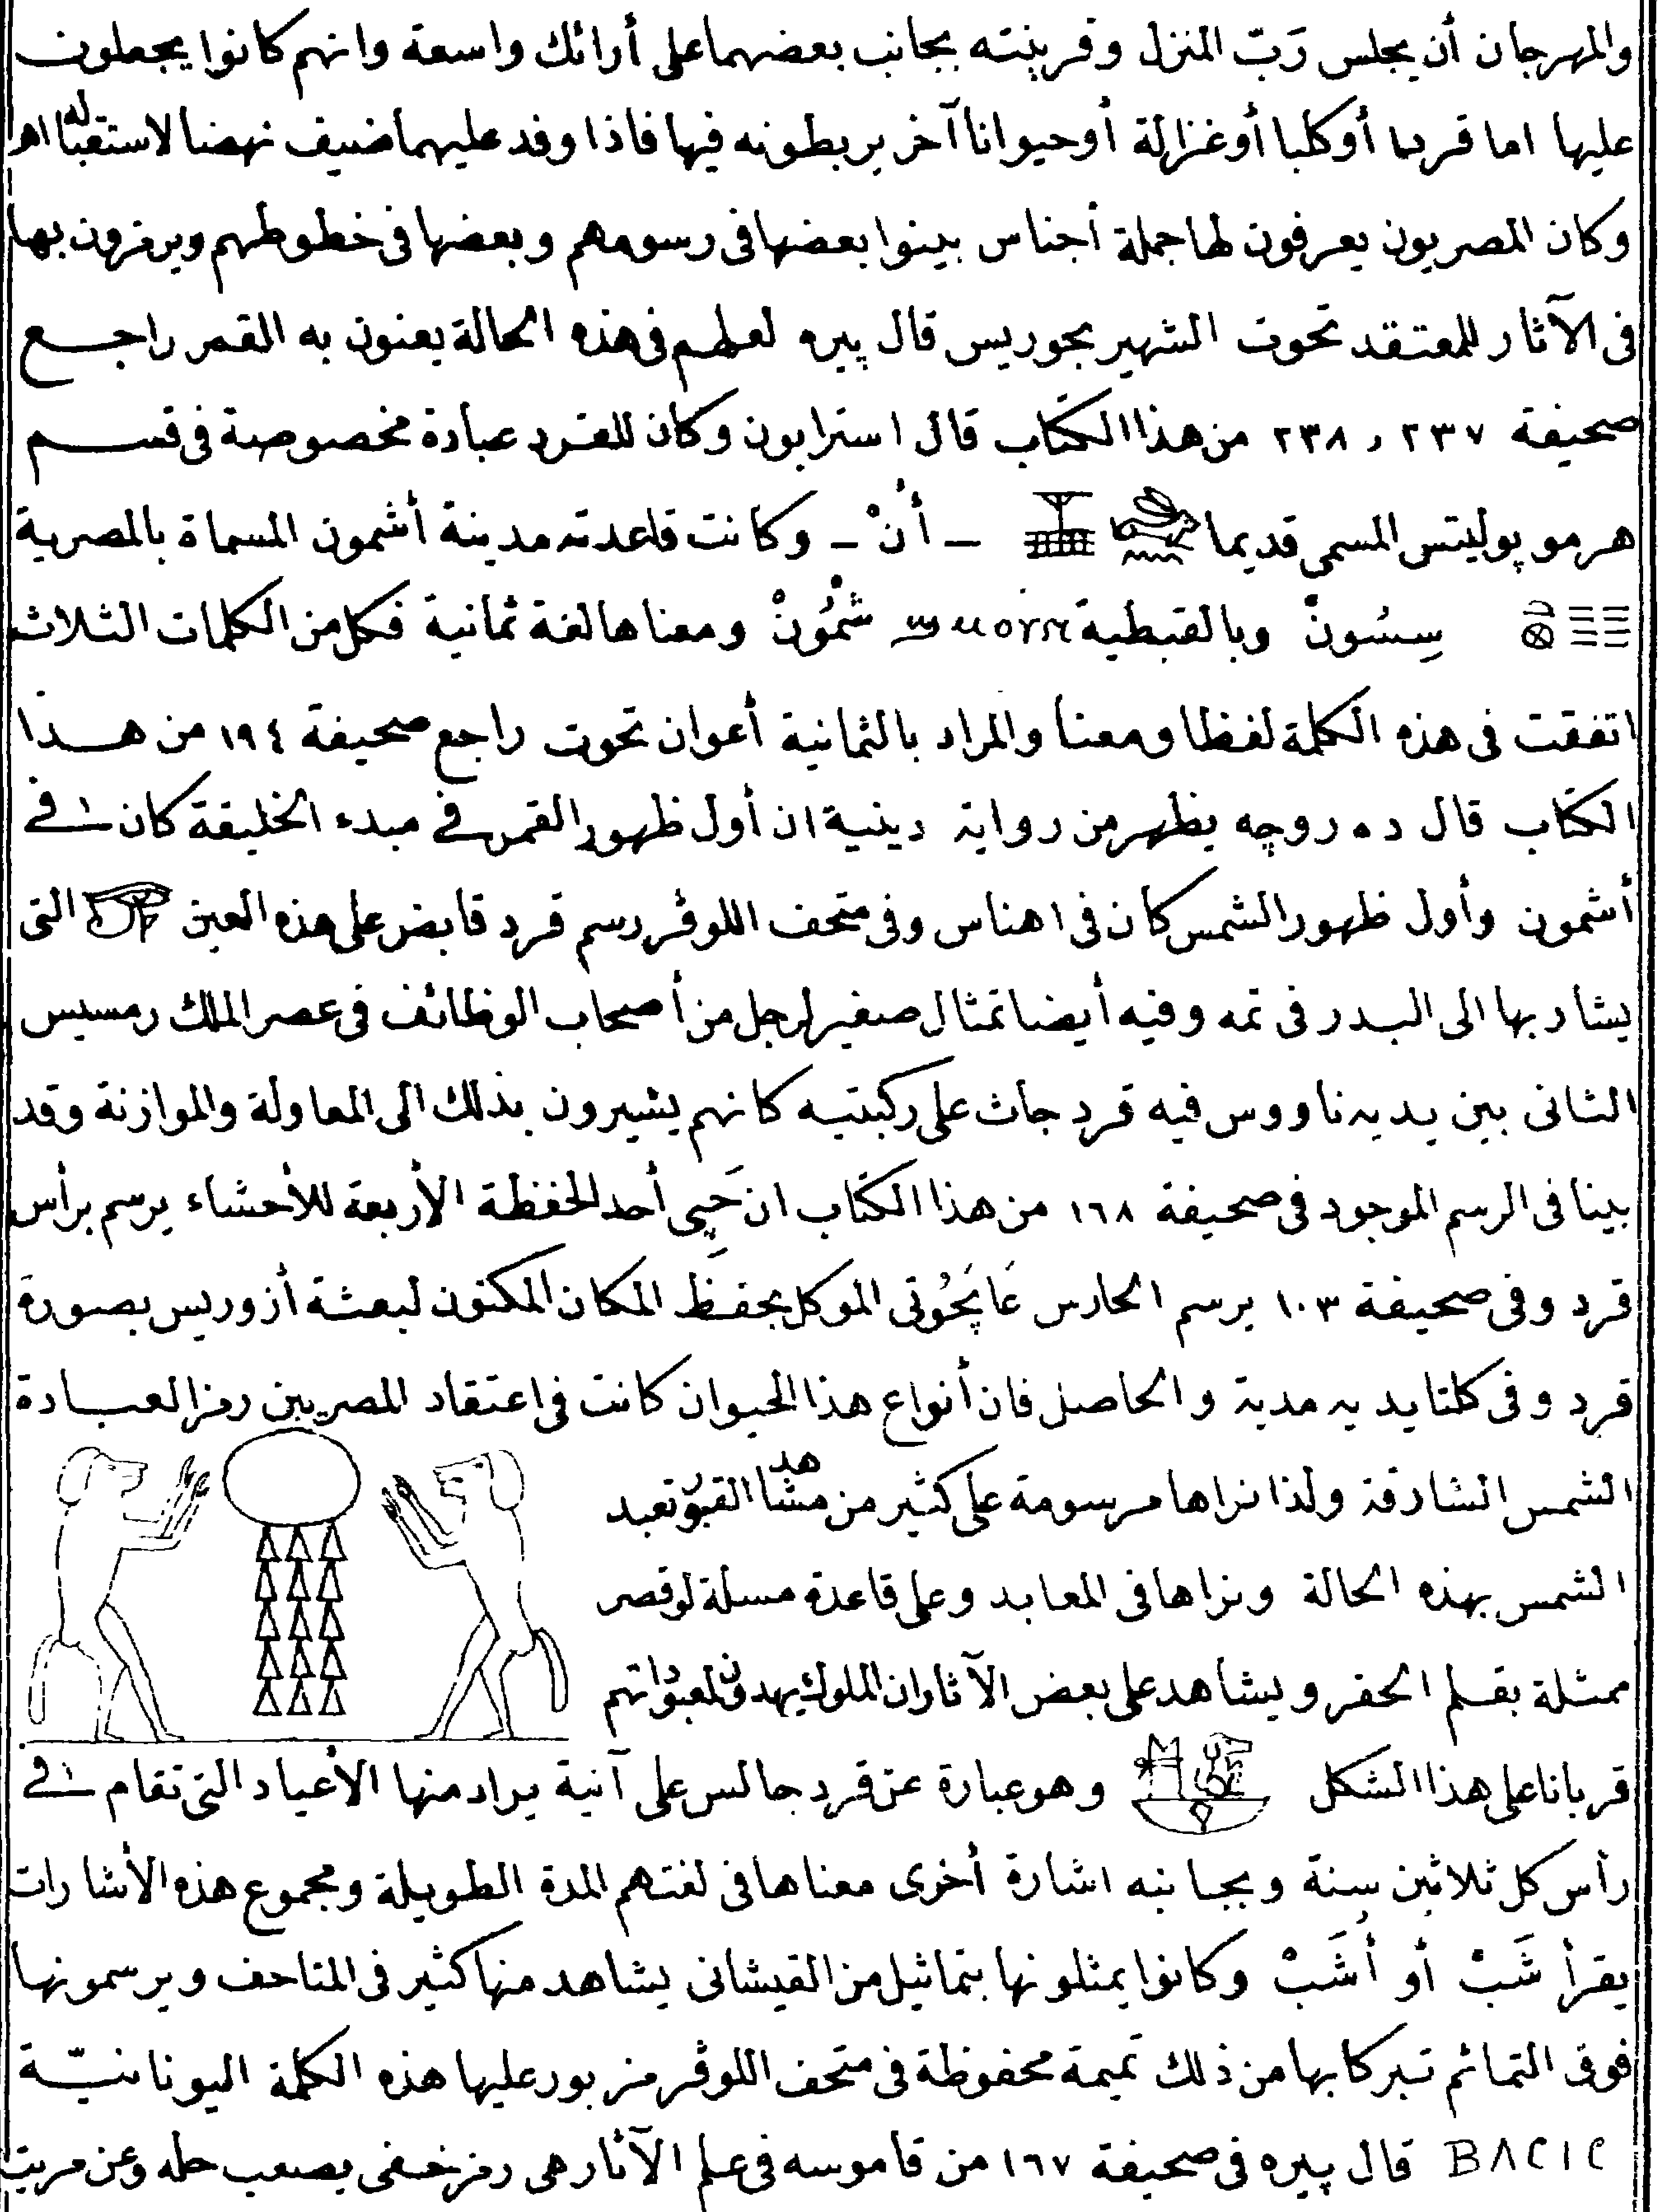 والمهرجان أن يجلس رَبّ المنزل وقرينته بجانب بعضهما على أرائك واسعة وانهم كانوا يجعلون
عليها اما قردا أو كلبا أو غزالة أو حيوانا آخر يربطونه فيها فاذا وفد عليهما ضيف نهضا لاستقباله اهـ
وكان المصريون يعرفون لها جملة أجناس بينوا بعضها فى رسومهم وبعضها فى خطوطهم ويرمزون بها
فى الآثار للمعتقد تحوت الشهير بجوريس قال پيره لعلهم فى هذه الحالة يعنون به القمر راجع
صحيفة ٢٣٧ و ٢٣٨ من هذا الكتاب قال استرابون وكان للقرد عبادة مخصوصة فى قسم
هرموپوليتس المسمى قديما – أُنْ – وكانت قاعدته مدينة أشمون المسماة بالمصرية
سِسُونْ وبالقبطية ϣⲙⲟⲩⲛ شْمُونْ ومعناها لغة ثمانية فكل من الكلمات الثلاث
اتفقت فى هذه الكلمة لفظا ومعنا والمراد بالثمانية أعوان تحوت راجع صحيفة ١٩٤ من هذا
الكتاب قال ده روچه يظهر من رواية دينية ان أول ظهور القمر فى مبدء الخليقة كان فى
أشمون وأول ظهور الشمس كان فى اهناس وفى متحف اللوڤر رسم قرد قابض على هذه العين التى
يشار بها الى البدر فى تمه وفيه أيضا تمثال صغير لرجل من أصحاب الوظائف فى عصر الملك رمسيس
الثانى بين يديه ناووس فيه قرد جاث على ركبتيه كانهم يشيرون بذلك الى المعاولة والموازنة وقد
بينا فى الرسم الموجود فى صحيفة ١٦٨ من هذا الكتاب ان حَپِى أحد الحفظة الأربعة للأحشاء يرسم برأس
قرد وفى صحيفة ١٠٣ يرسم الحارس عَاپَحُوتى الموكل بحفظ المكان المكنون لبعثة أزوريس بصورة
قرد وفى كلتا يديه مدية والحاصل فان أنواع هذا الحيوان كانت فى اعتقاد المصريين رمزا لعبادة
الشمس الشارقة ولذا نراها مرسومة على كثير من مشاهد القبور تعبد
الشمس بهذه الحالة ونراها فى المعابد وعلى قاعدة مسلة لوقصر
ممثلة بقلم الحفر ويشاهد على بعض الآثار ان الملوك يهدون لمعبوداتهم
قربانا على هذا الشكل وهو عبارة عن قرد جالس على آنية يراد منها الأعياد التى تقام فى
رأس كل ثلاثين سنة وبجانبه اشارة أخرى معناها فى لغتهم المدة الطويلة ومجموع هذه الأشارات
يقرأ شَبْ أو أُشَبْ وكانوا يمثلونها بتماثيل من القيشانى يشاهد منها كثير فى المتاحف ويرسمونها
فوق التمائم تبركا بها من ذلك تميمة محفوظة فى متحف اللوڤر مزبور عليها هذه الكلمة اليونانيّة
ΒΑCΙC قال پيره فى صحيفة ١٦٧ من قاموسه فى علم الآثار هى رمز خفى يصعب حله وعن مريت